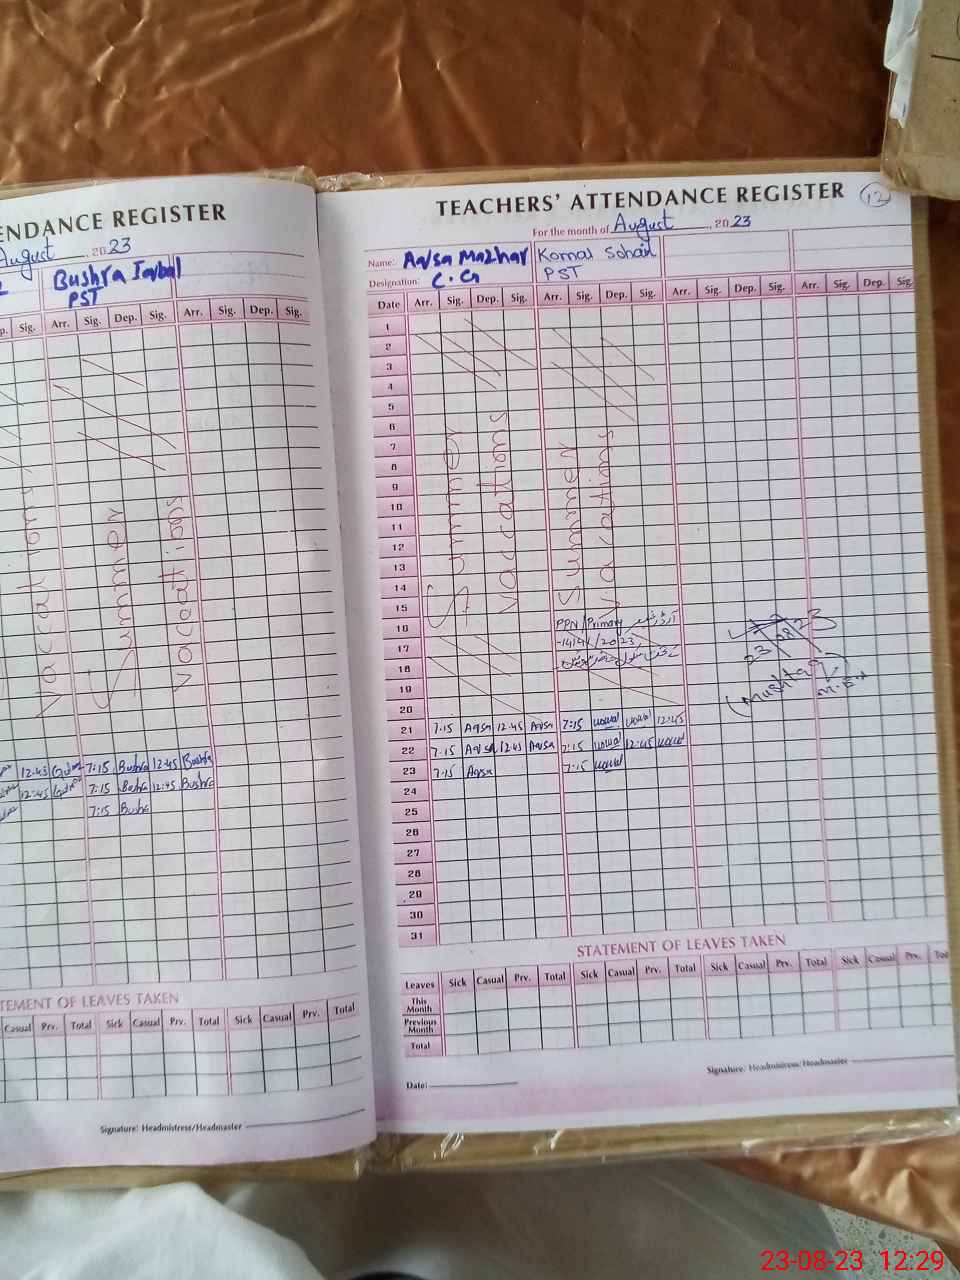 ENDANCE REGISTER
August , 2023
Bushra Iqbal
PST
p. Sig. Arr. Sig. Dep. Sig. Arr. Sig. Dep. Sig.
Vaccations
Summer
vacoations
12:45 7:15 Bushra 12:45 Bushra
12:45 7:15 Bushra 12:45 Bushra
7:15 Bushra
TEMENT OF LEAVES TAKEN
Casual Prv. Total Sick Casual Prv. Total Sick Casual Prv. Total
Signature: Headmistress/Headmaster
TEACHERS' ATTENDANCE REGISTER 12
For the month of August , 2023
Name: Aqsa Mazhar Komal Sohail
Designation: C.G PST
Date Arr. Sig. Dep. Sig. Arr. Sig. Dep. Sig. Arr. Sig. Dep. Sig. Arr. Sig. Dep. Sig.
1
2
3
4
5
6
7
8
9
10
11
12
13
14
15
Summer
Vaccations
Summer
Vacations
16 PPN/Primary
17
18
19
20
21 7:15 Aqsa 12:45 Aqsa 7:15 12:45
22 7:15 Aqsa 12:45 Aqsa 7:15 12:45
23 7:15 Aqsa 7:15
24
25
26
27
28
29
30
31
23/08/23
(Mushtaq)
STATEMENT OF LEAVES TAKEN
Leaves Sick Casual Prv. Total Sick Casual Prv. Total Sick Casual Prv. Total Sick Casual Prv. Tot
This Month
Previous Month
Total
Date:
Signature: Headmistress/Headmaster
23-08-23 12:29